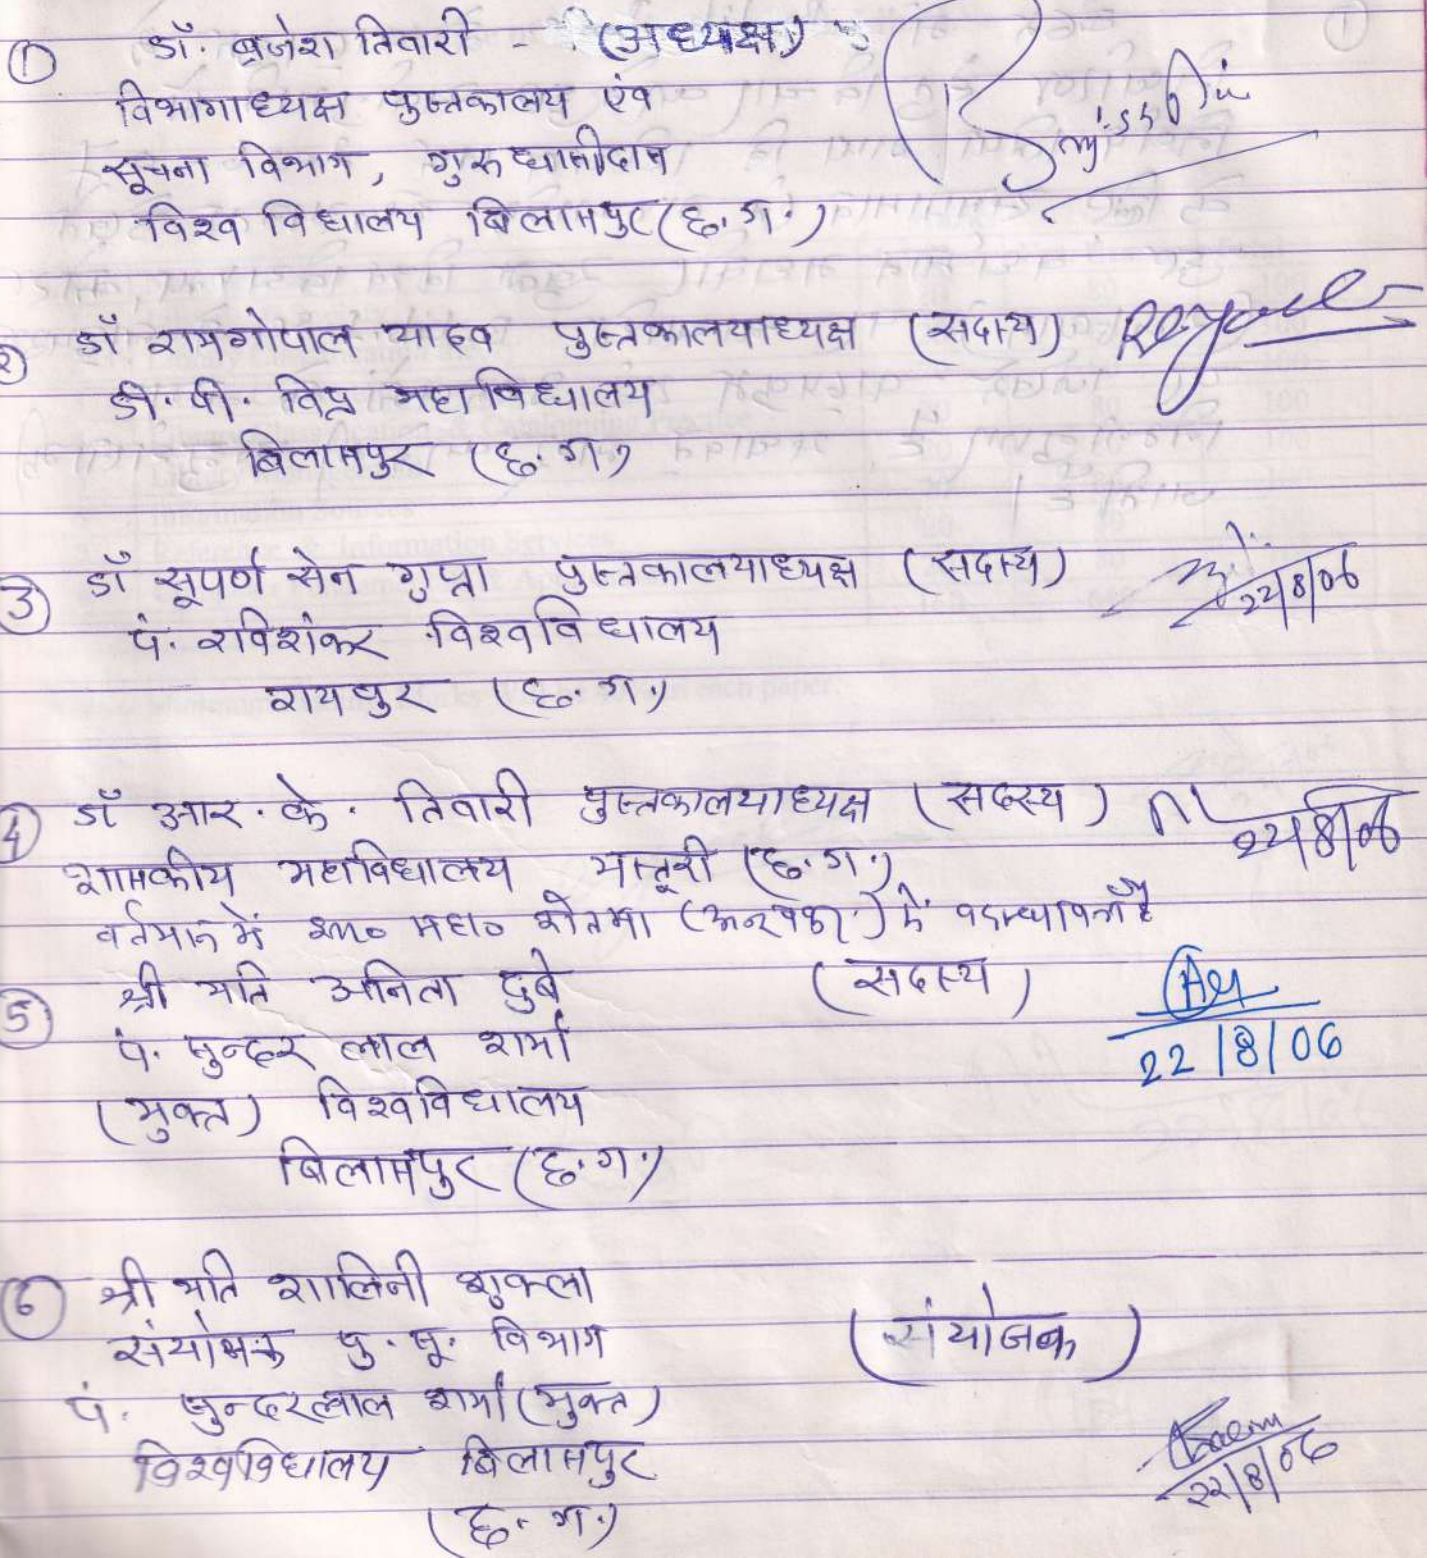 ① डॉ. ब्रजेश तिवारी - (अध्यक्ष)
विभागाध्यक्ष पुस्तकालय एंव
सूचना विभाग, गुरु घासीदास
विश्व विद्यालय बिलासपुर (छ.ग.)
② डॉ रामगोपाल यादव पुस्तकालयाध्यक्ष (सदस्य)
डी. पी. विप्र महाविद्यालय
बिलासपुर (छ.ग.)
③ डॉ सूपर्ण सेन गुप्ता पुस्तकालयाध्यक्ष (सदस्य)
22/8/06
पं. रविशंकर विश्वविद्यालय
रायपुर (छ.ग.)
④ डॉ आर. के. तिवारी पुस्तकालयाध्यक्ष (सदस्य)
22/8/06
शासकीय महाविद्यालय मस्तूरी (छ.ग.)
वर्तमान में शा० महा० में है
⑤ श्री मति अनिता दुबे (सदस्य)
पं. सुन्दर लाल शर्मा
22/8/06
(मुक्त) विश्वविद्यालय
बिलासपुर (छ.ग.)
⑥ श्री मति शालिनी शुक्ला
संयोजक पु. सू. विभाग (संयोजक)
पं. सुन्दरलाल शर्मा (मुक्त)
विश्वविद्यालय बिलासपुर
22/8/06
(छ.ग.)